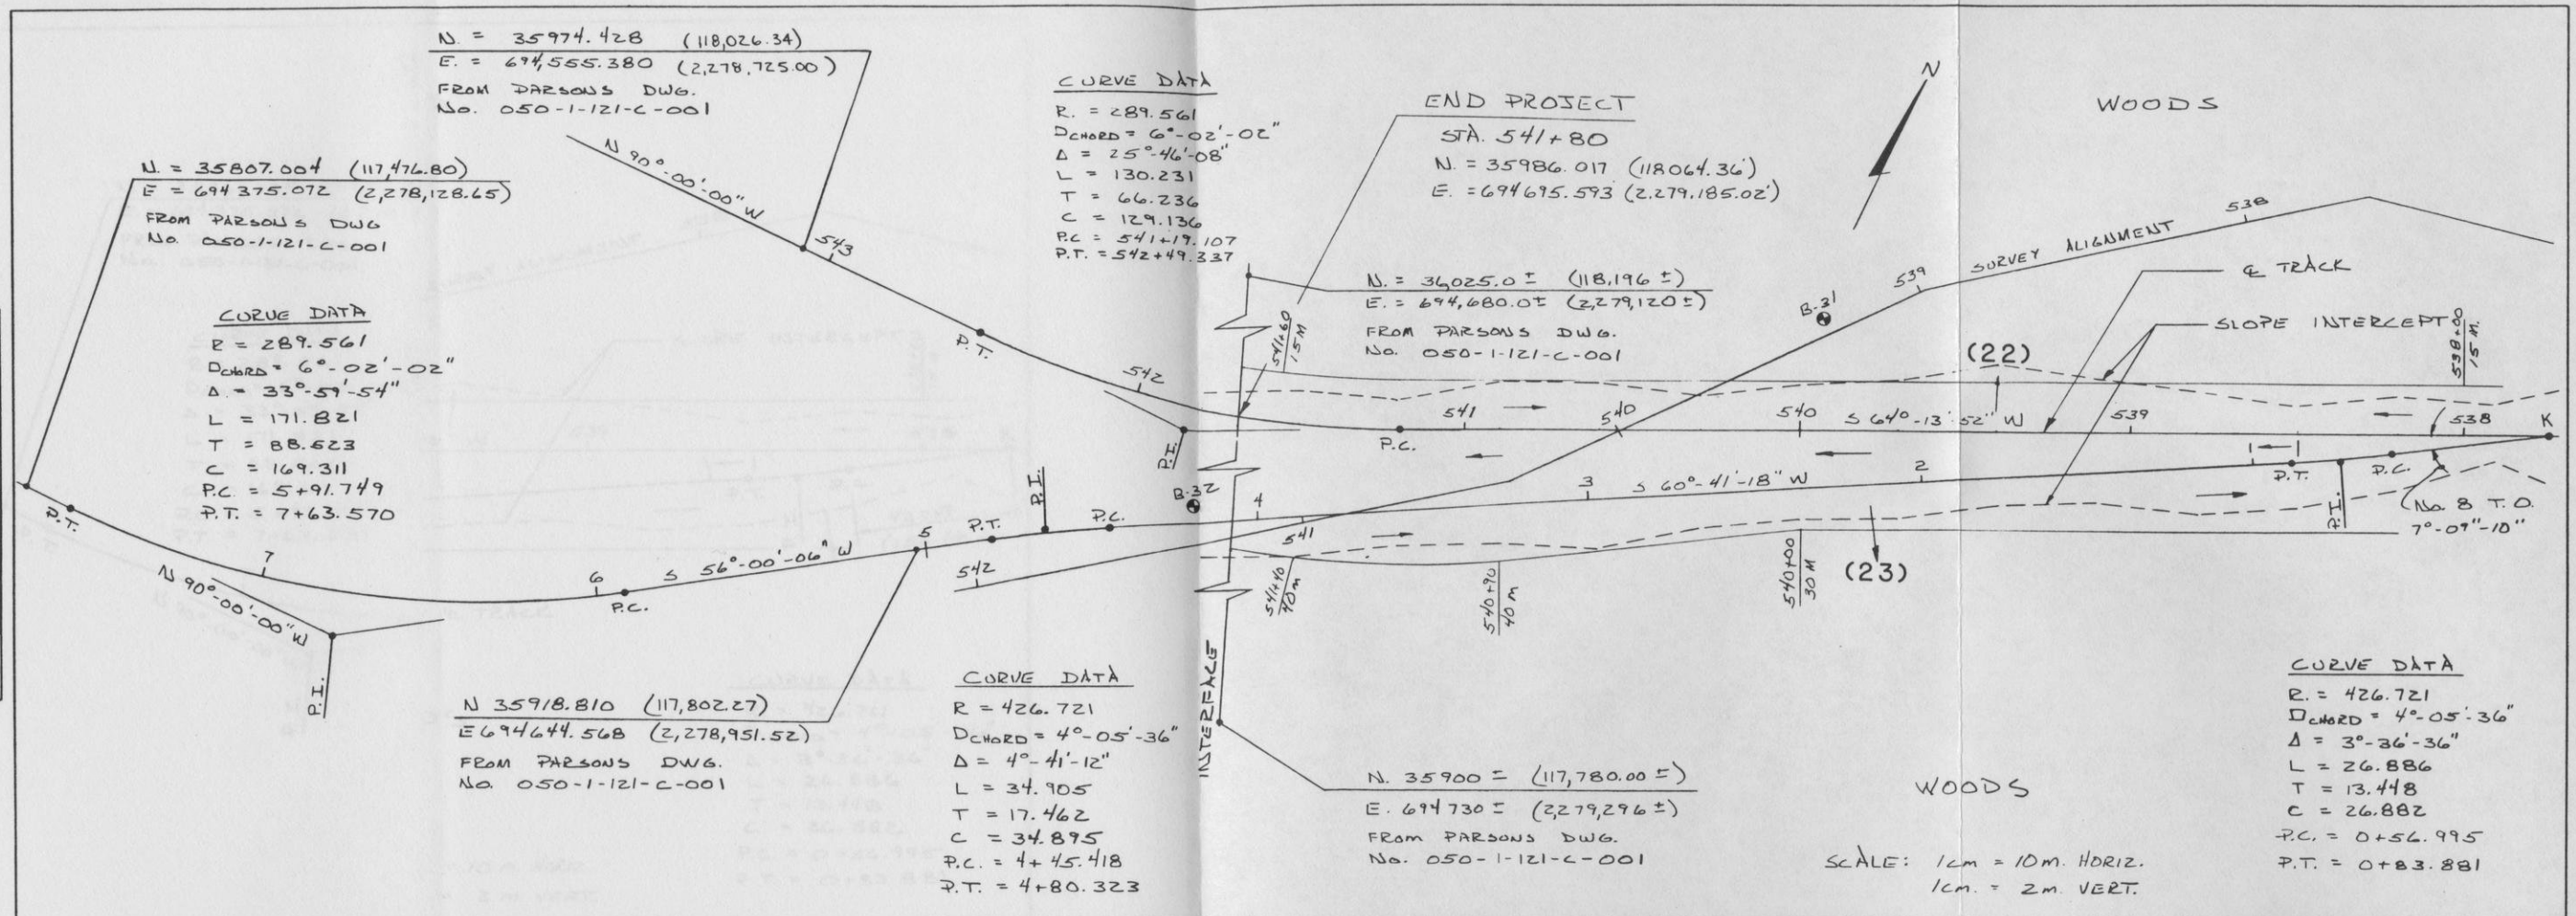 N. = 35974.428 (118,026.34)
E. = 694,555.380 (2,278,725.00)
FROM PARSONS DWG.
No. 050-1-121-C-001
N. = 35807.004 (117,476.80)
E = 694375.072 (2,278,128.65)
FROM PARSONS DWG
No. 050-1-121-C-001
CURVE DATA
R = 289.561
DCHORD = 6°-02'-02"
Δ = 33°-59'-54"
L = 171.821
T = 88.523
C = 169.311
P.C. = 5+91.749
P.T. = 7+63.570
CURVE DATA
R. = 289.561
DCHORD = 6°-02'-02"
Δ = 25°-46'-08"
L = 130.231
T = 66.236
C = 129.136
P.C = 541+19.107
P.T. = 542+49.337
END PROJECT
STA. 541+80
N. = 35986.017 (118064.36')
E. = 694695.593 (2,279,185.02')
N
WOODS
N. = 36,025.0 ± (118,196 ±)
E. = 694,680.0± (2,279,120±)
FROM PARSONS DWG.
No. 050-1-121-C-001
N 90°-00'-00" W
543
P.T.
542
P.I.
541+60
15 M
P.C.
541
540
540
S 64°-13'-52" W
539
538
K
B-31
539
SURVEY ALIGNMENT
538
℄ TRACK
SLOPE INTERCEPT
538+00
15 M.
(22)
P.T.
7
N 90°-00'-00" W
P.I.
6
P.C.
S 56°-00'-06" W
5
P.T.
P.I.
P.C.
B-32
4
542
541
3
S 60°-41'-18" W
2
1
P.T.
P.I.
P.C.
No. 8 T.O.
7°-09"-10"
541+40
40 m
540+90
40 m
540+00
30 M
(23)
INTERFACE
N 35918.810 (117,802.27)
E 694644.568 (2,278,951.52)
FROM PARSONS DWG.
No. 050-1-121-C-001
CURVE DATA
R = 426.721
DCHORD = 4°-05'-36"
Δ = 4°-41'-12"
L = 34.905
T = 17.462
C = 34.895
P.C. = 4+45.418
P.T. = 4+80.323
N. 35900 ± (117,780.00 ±)
E. 694730 ± (2,279,296 ±)
FROM PARSONS DWG.
No. 050-1-121-C-001
WOODS
SCALE: 1cm = 10m. HORIZ.
1cm. = 2m. VERT.
CURVE DATA
R. = 426.721
DCHORD = 4°-05'-36"
Δ = 3°-36'-36"
L = 26.886
T = 13.448
C = 26.882
P.C. = 0+56.995
P.T. = 0+83.881